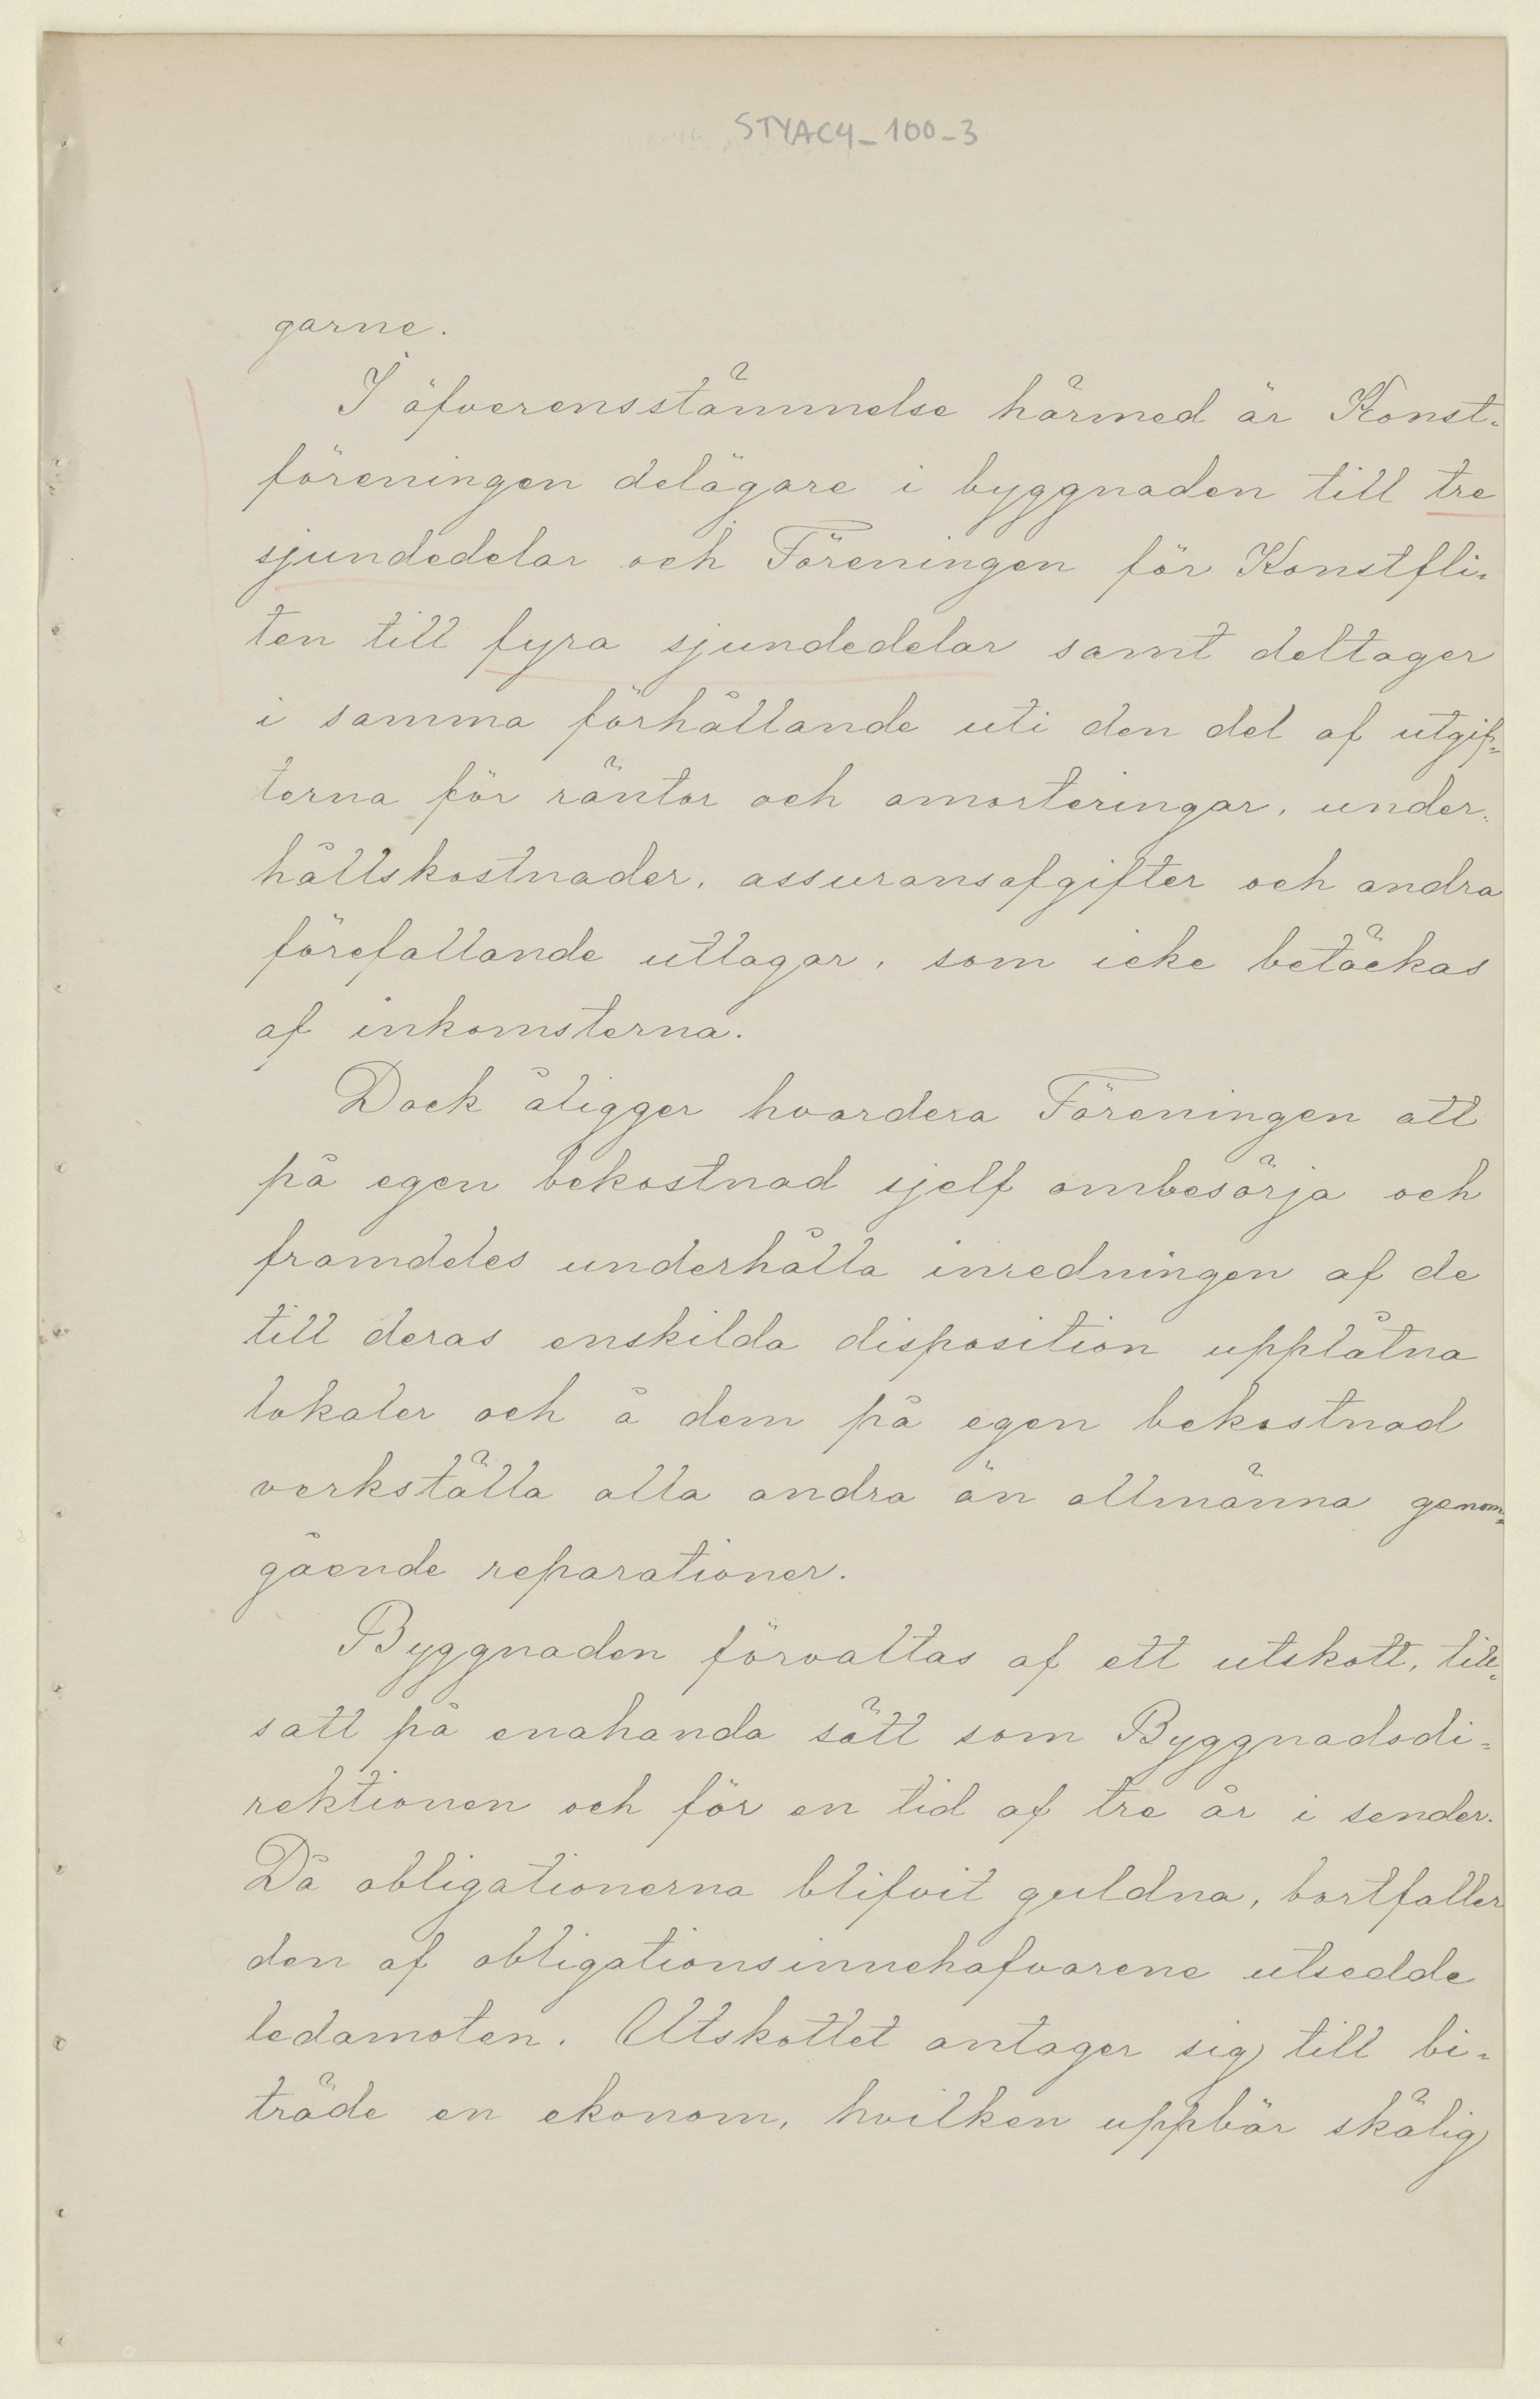 STYAC4_100-3
garne.
I öfverensstämmelse härmed är Konst-
föreningen delägare i byggnaden till tre
sjundedelar och Föreningen för Konstfli-
ten till fyra sjundedelar samt deltager
i samma förhållande uti den del af utgif-
terna för räntor och amorteringar, under-
hållskostnader, assuransafgifter och andra
förefallande utlagar, som icke betäckas
af inkomsterna.
Dock åligger hvardera Föreningen att
på egen bekostnad sjelf ombesörja och
framdeles underhålla inredningen af de
till deras enskilda disposition upplåtna
lokaler och å dem på egen bekostnad
verkställa alla andra än allmänna genom-
gående reparationer.
Byggnaden förvaltas af ett utskott, till-
satt på enahanda sätt som Byggnadsdi-
rektionen och för en tid af tre år i sender.
Då obligationerna blifvit guldna, bortfaller
den af obligationsinnehafvarene utsedde
ledamoten. Utskottet antager sig till bi-
träde en ekonom, hvilken uppbär skälig